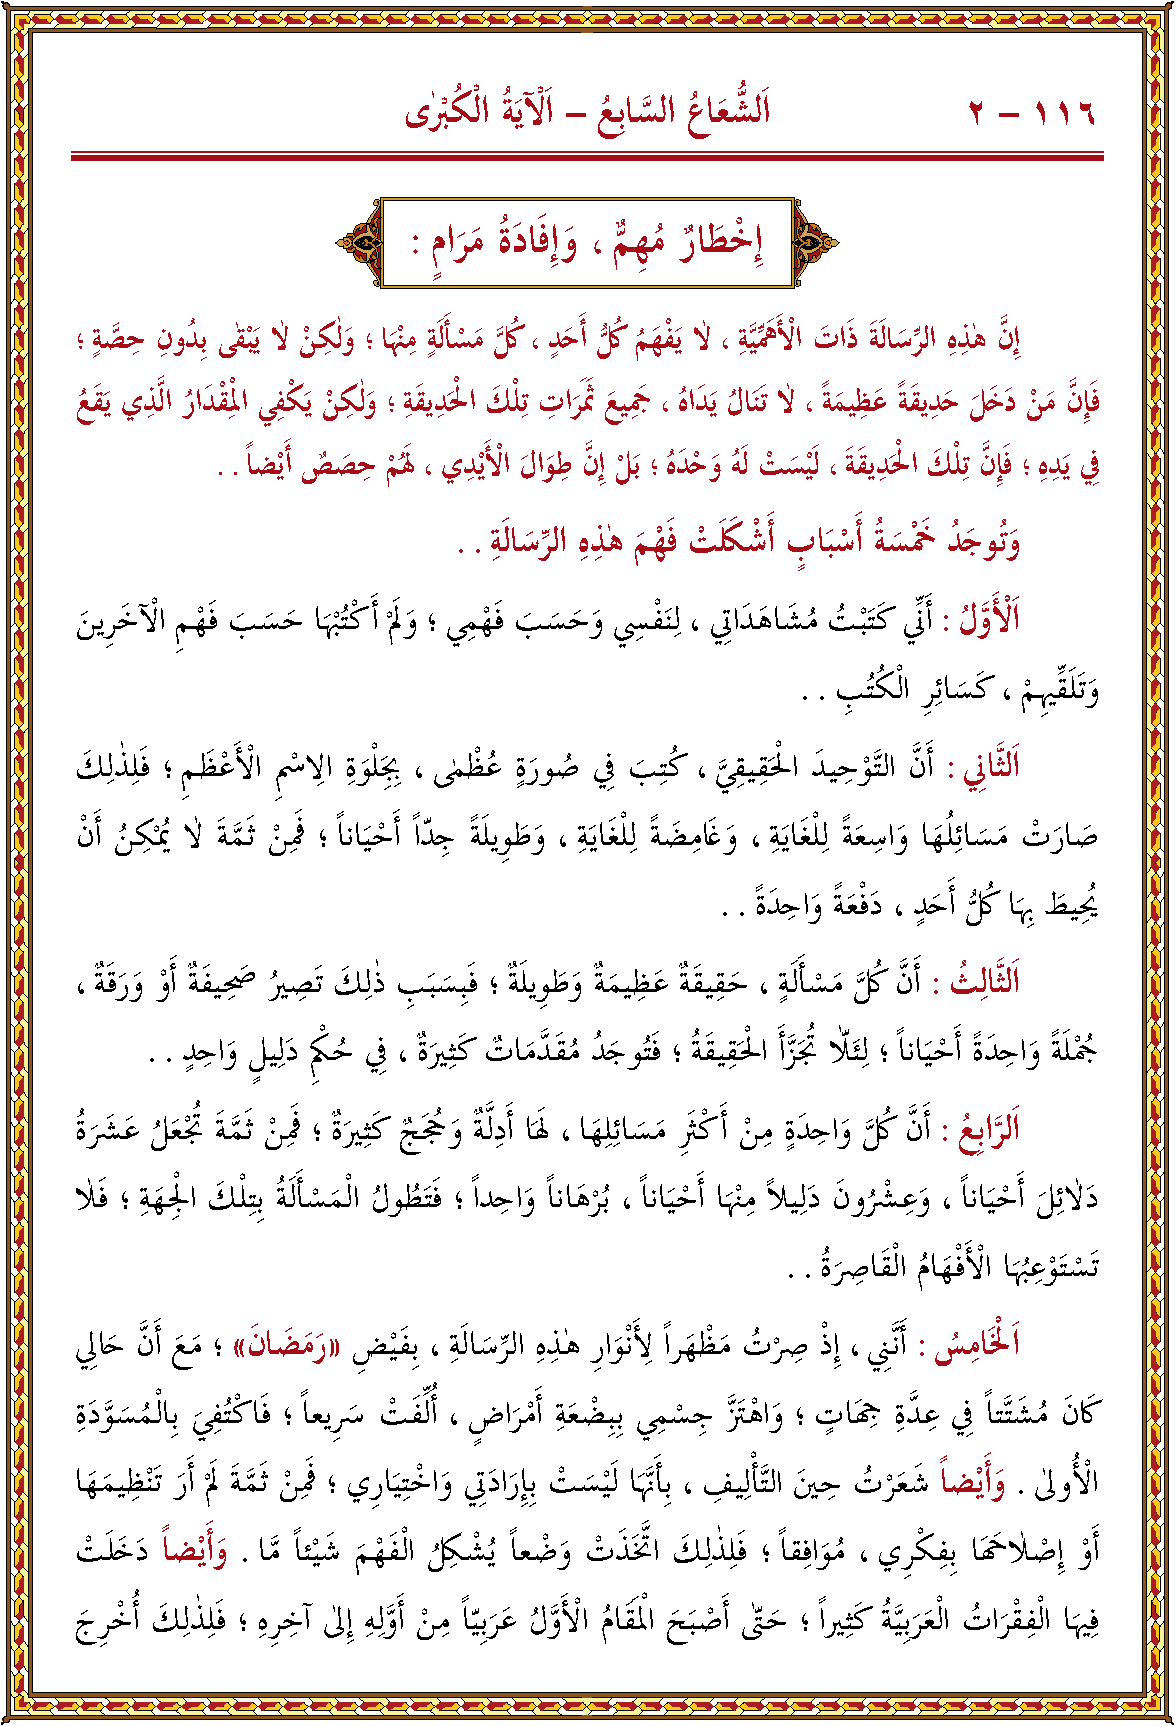 ١١٦ – ٢
اَلشُّعَاعُ السَّابِعُ – اَلْآيَةُ الْكُبْرٰى
إِخْطَارٌ مُهِمٌّ ، وَإِفَادَةُ مَرَامٍ :
إِنَّ هٰذِهِ الرِّسَالَةَ ذَاتَ الْأَهَمِّيَّةِ ، لاٰ يَفْهَمُ كُلُّ أَحَدٍ ، كُلَّ مَسْأَلَةٍ مِنْهَا ؛ وَلٰكِنْ لاٰ يَبْقٰى بِدُونِ حِصَّةٍ ؛
فَإِنَّ مَنْ دَخَلَ حَدِيقَةً عَظِيمَةً ، لاٰ تَنَالُ يَدَاهُ ، جَمِيعَ ثَمَرَاتِ تِلْكَ الْحَدِيقَةِ ؛ وَلٰكِنْ يَكْفِي الْمِقْدَارُ الَّذِي يَقَعُ
فِي يَدِهِ ؛ فَإِنَّ تِلْكَ الْحَدِيقَةَ ، لَيْسَتْ لَهُ وَحْدَهُ ؛ بَلْ إِنَّ طِوَالَ الْأَيْدِي ، لَهُمْ حِصَصٌ أَيْضاً . .
وَتُوجَدُ خَمْسَةُ أَسْبَابٍ أَشْكَلَتْ فَهْمَ هٰذِهِ الرِّسَالَةِ . .
اَلْأَوَّلُ : أَنِّي كَتَبْتُ مُشَاهَدَاتِي ، لِنَفْسِي وَحَسَبَ فَهْمِي ؛ وَلَمْ أَكْتُبْهَا حَسَبَ فَهْمِ الْآخَرِينَ
وَتَلَقِّيهِمْ ، كَسَائِرِ الْكُتُبِ . .
اَلثَّانِي : أَنَّ التَّوْحِيدَ الْحَقِيقِيَّ ، كُتِبَ فِي صُورَةٍ عُظْمٰى ، بِجِلْوَةِ الِاسْمِ الْأَعْظَمِ ؛ فَلِذٰلِكَ
صَارَتْ مَسَائِلُهَا وَاسِعَةً لِلْغَايَةِ ، وَغَامِضَةً لِلْغَايَةِ ، وَطَوِيلَةً جِدّاً أَحْيَاناً ؛ فَمِنْ ثَمَّةَ لاٰ يُمْكِنُ أَنْ
يُحِيطَ بِهَا كُلُّ أَحَدٍ ، دَفْعَةً وَاحِدَةً . .
اَلثَّالِثُ : أَنَّ كُلَّ مَسْأَلَةٍ ، حَقِيقَةٌ عَظِيمَةٌ وَطَوِيلَةٌ ؛ فَبِسَبَبِ ذٰلِكَ تَصِيرُ صَحِيفَةٌ أَوْ وَرَقَةٌ ،
جُمْلَةً وَاحِدَةً أَحْيَاناً ؛ لِئَلاّٰ تُجَزَّأَ الْحَقِيقَةُ ؛ فَتُوجَدُ مُقَدَّمَاتٌ كَثِيرَةٌ ، فِي حُكْمِ دَلِيلٍ وَاحِدٍ . .
اَلرَّابِعُ : أَنَّ كُلَّ وَاحِدَةٍ مِنْ أَكْثَرِ مَسَائِلِهَا ، لَهَا أَدِلَّةٌ وَحُجَجٌ كَثِيرَةٌ ؛ فَمِنْ ثَمَّةَ تُجْعَلُ عَشَرَةُ
دَلاٰئِلَ أَحْيَاناً ، وَعِشْرُونَ دَلِيلاً مِنْهَا أَحْيَاناً ، بُرْهَاناً وَاحِداً ؛ فَتَطُولُ الْمَسْأَلَةُ بِتِلْكَ الْجِهَةِ ؛ فَلاٰ
تَسْتَوْعِبُهَا الْأَفْهَامُ الْقَاصِرَةُ . .
اَلْخَامِسُ : أَنَّنِي ، إِذْ صِرْتُ مَظْهَراً لِأَنْوَارِ هٰذِهِ الرِّسَالَةِ ، بِفَيْضِ «رَمَضَانَ» ؛ مَعَ أَنَّ حَالِي
كَانَ مُشَتَّتاً فِي عِدَّةِ جِهَاتٍ ؛ وَاهْتَزَّ جِسْمِي بِبِضْعَةِ أَمْرَاضٍ ، أُلِّفَتْ سَرِيعاً ؛ فَاكْتُفِيَ بِالْمُسَوَّدَةِ
الْأُولٰى . وَأَيْضاً شَعَرْتُ حِينَ التَّأْلِيفِ ، بِأَنَّهَا لَيْسَتْ بِإِرَادَتِي وَاخْتِيَارِي ؛ فَمِنْ ثَمَّةَ لَمْ أَرَ تَنْظِيمَهَا
أَوْ إِصْلاٰحَهَا بِفِكْرِي ، مُوَافِقاً ؛ فَلِذٰلِكَ اتَّخَذَتْ وَضْعاً يُشْكِلُ الْفَهْمَ شَيْئاً مَّا . وَأَيْضاً دَخَلَتْ
فِيهَا الْفِقْرَاتُ الْعَرَبِيَّةُ كَثِيراً ؛ حَتّٰى أَصْبَحَ الْمَقَامُ الْأَوَّلُ عَرَبِيّاً مِنْ أَوَّلِهِ إِلٰى آخِرِهِ ؛ فَلِذٰلِكَ أُخْرِجَ